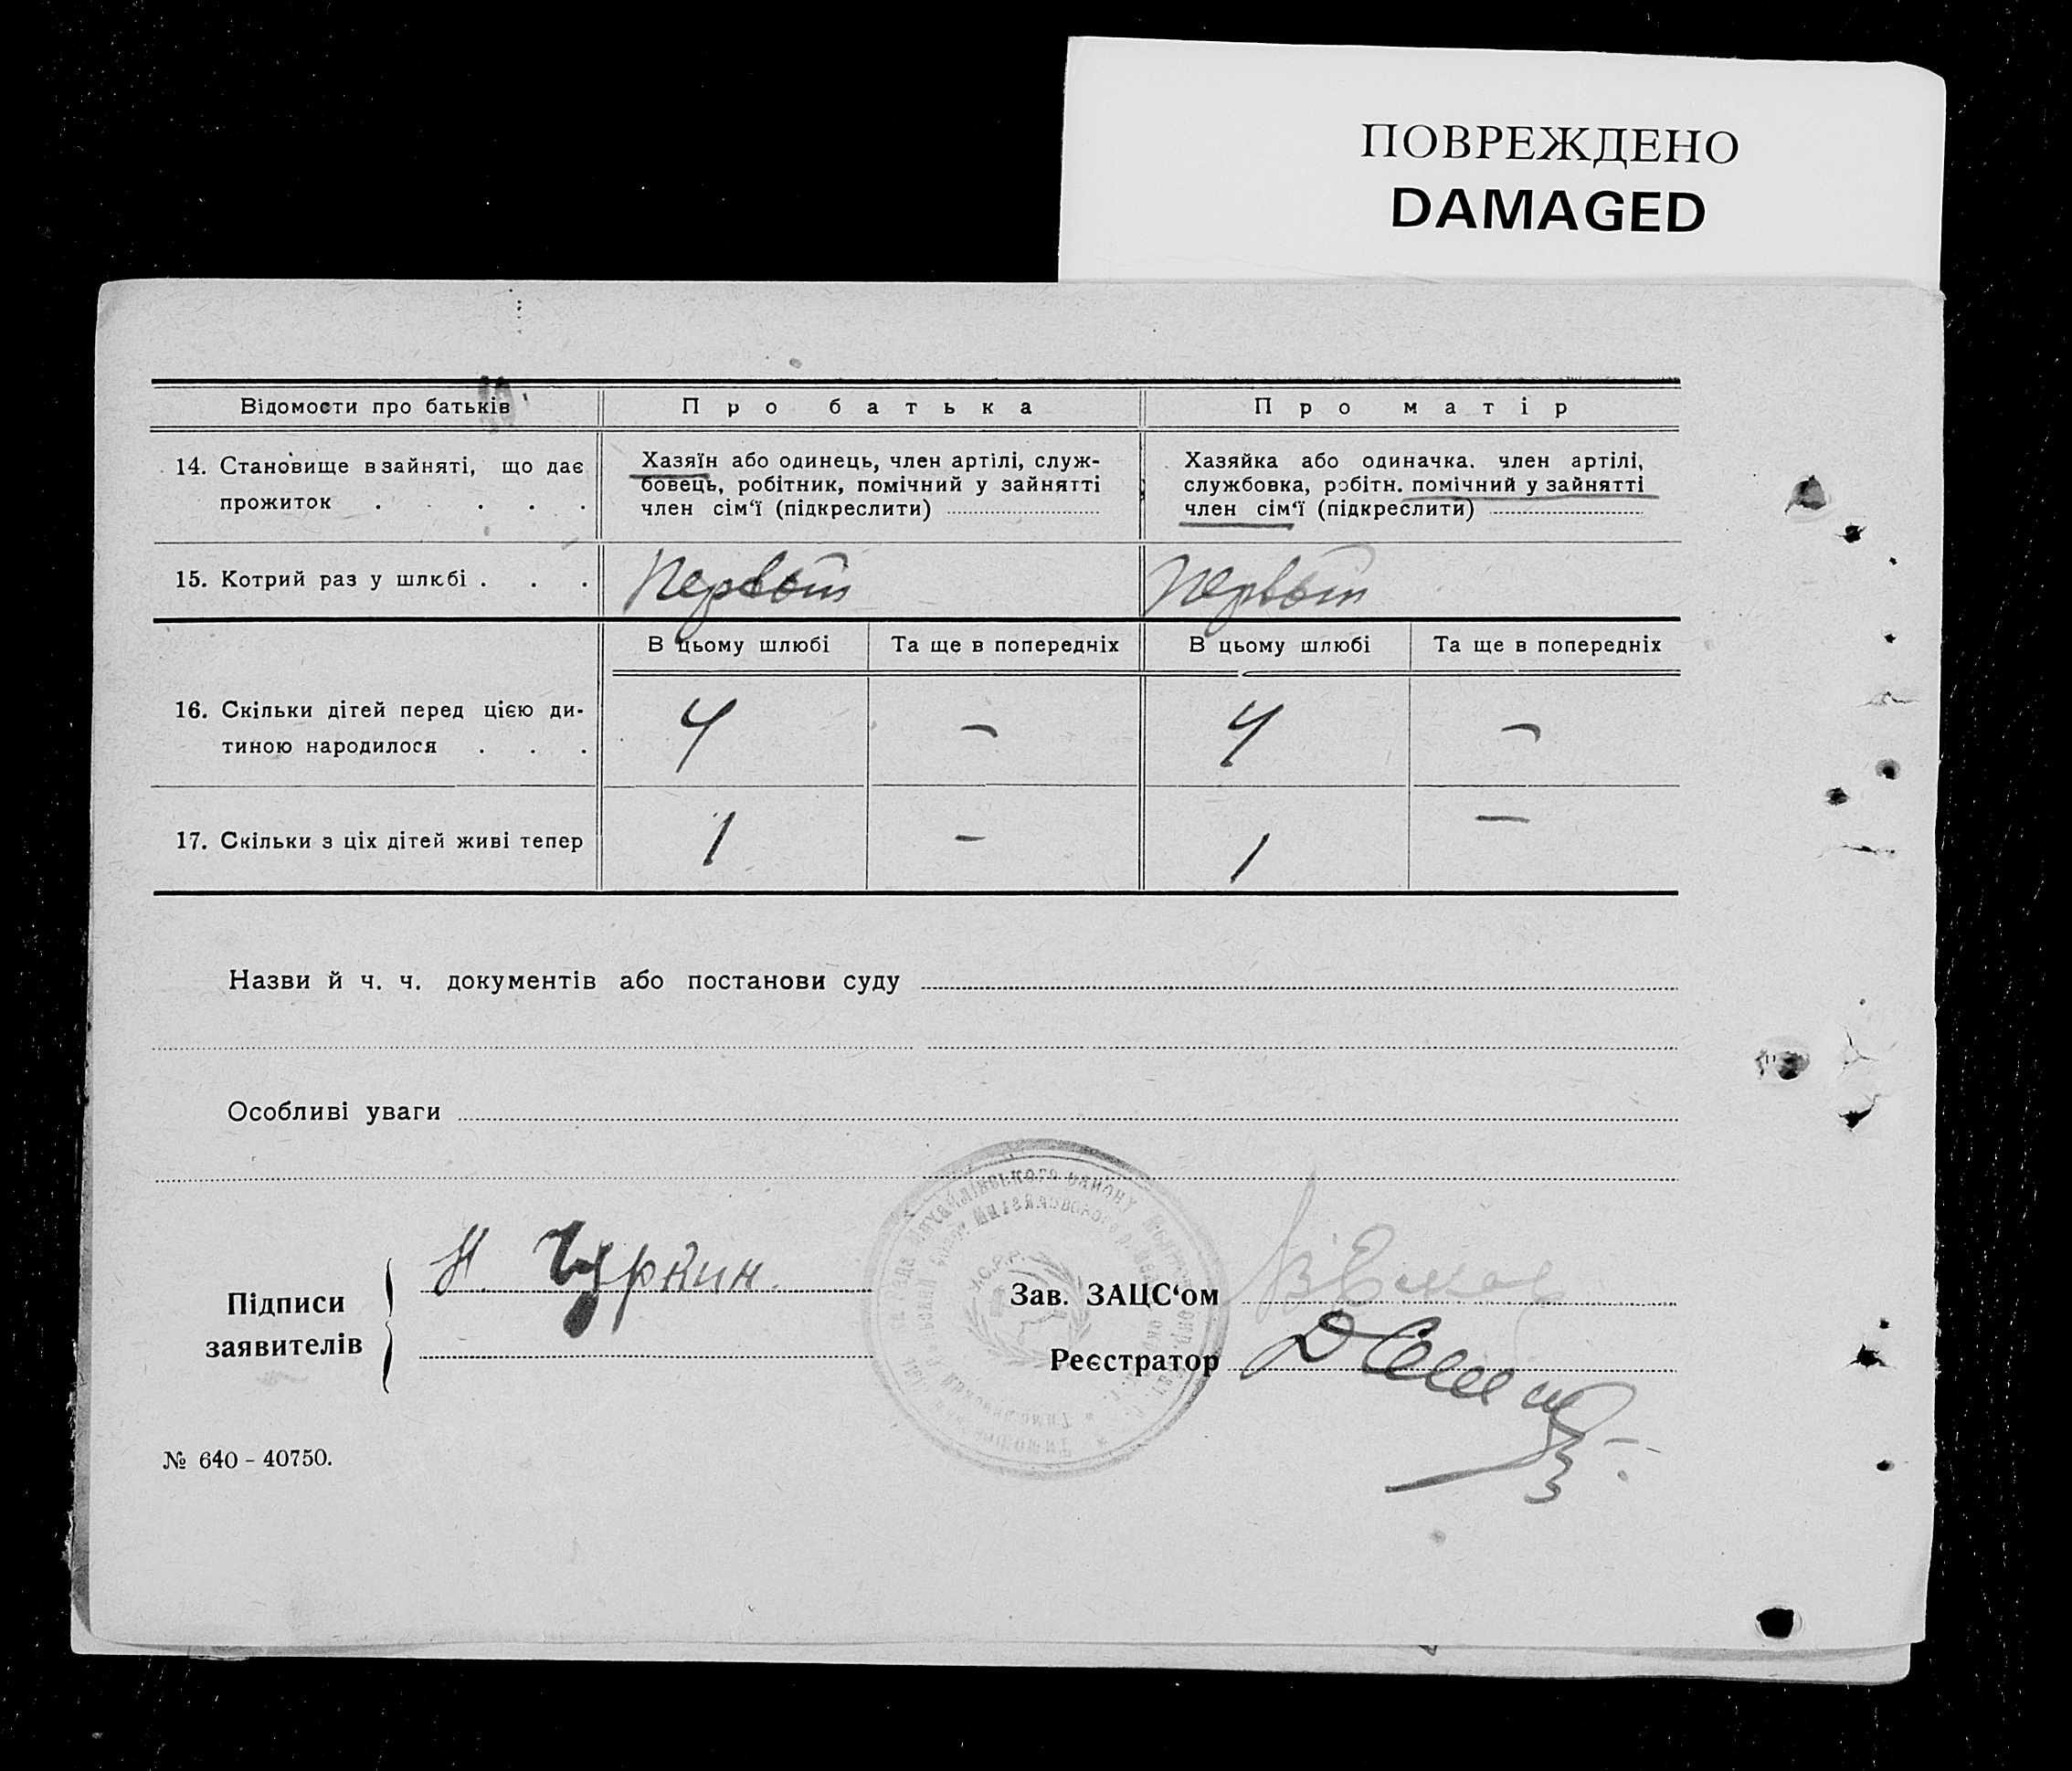 ПОВРЕЖДЕНО
DAMAGED
Відомости про батьків
Про батька
Про матір
14. Становище в зайняті, що дає
прожиток . . . . .
Хазяїн або одинець, член артілі, служ-
бовець, робітник, помічний у зайнятті
член сім‘ї (підкреслити)
Хазяйка або одиначка. член артілі,
службовка, робітн. помічний у зайнятті
член сім‘ї (підкреслити)
15. Котрий раз у шлюбі . . .
Первый
Первый
В цьому шлюбі
Та ще в попередніх
В цьому шлюбі
Та ще в попередніх
16. Скільки дітей перед цією ди-
тиною народилося . . .
4 – 4 –
17. Скільки з ціх дітей живі тепер
1 – 1 –
Назви й ч. ч. документів або постанови суду
Особливі уваги
Підписи
заявителів
Н. Чуркин.
Зав. ЗАЦС‘ом
Реєстратор
У.С.Р.Р.
№ 640 - 40750.